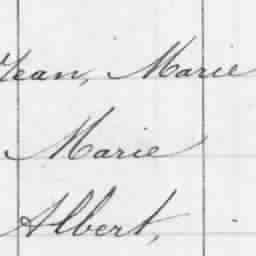 Jean, Marie
Marie
Albert,